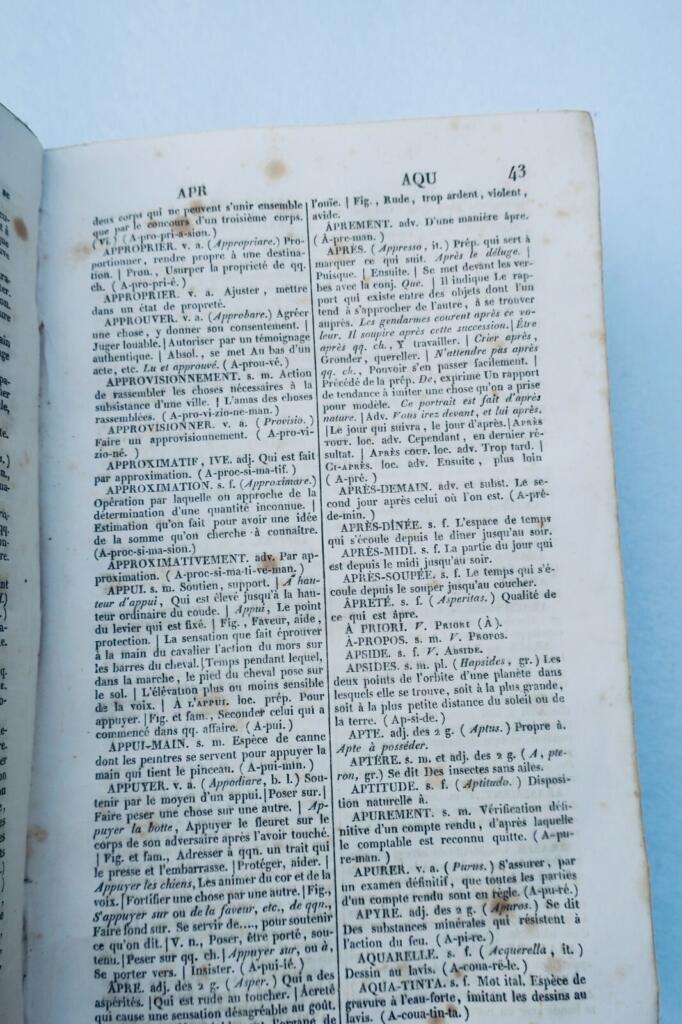 APR
deux corps qui ne peuvent s'unir ensemble
que par le concours d'un troisième corps.
(vi.) (A-pro-pri-a-sion.)
APPROPRIER. v. a. (Appropriare.) Pro-
portionner, rendre propre à une destina-
tion. | Pron., Usurper la propriété de qq.
ch. (A-pro-pri-é.)
APPROPRIER. v. a. Ajuster, mettre
dans un état de propreté.
APPROUVER. v. a. (Approbare.) Agréer
une chose, y donner son consentement. |
Juger louable. | Autoriser par un témoignage
authentique. | Absol., se met Au bas d'un
acte, etc. Lu et approuvé. (A-prou-vé.)
APPROVISIONNEMENT. s. m. Action
de rassembler les choses nécessaires à la
subsistance d'une ville. | L'amas des choses
rassemblées. (A-pro-vi-zio-ne-man.)
APPROVISIONNER. v. a. (Provisio.)
Faire un approvisionnement. (A-pro-vi-
zio-né.)
APPROXIMATIF, IVE. adj. Qui est fait
par approximation. (A-proc-si-ma-tif.)
APPROXIMATION. s. f. (Approximare.)
Opération par laquelle on approche de la
détermination d'une quantité inconnue. |
Estimation qu'on fait pour avoir une idée
de la somme qu'on cherche à connaître.
(A-proc-si-ma-sion.)
APPROXIMATIVEMENT. adv. Par ap-
proximation. (A-proc-si-ma-ti-ve-man.)
APPUI. s. m. Soutien, support. | A hau-
teur d'appui, Qui est élevé jusqu'à la hau-
teur ordinaire du coude. | Appui, Le point
du levier qui est fixé. | Fig., Faveur, aide,
protection. | La sensation que fait éprouver
à la main du cavalier l'action du mors sur
les barres du cheval. | Temps pendant lequel,
dans la marche, le pied du cheval pose sur
le sol. | L'élévation plus ou moins sensible
de la voix. | À L'APPUI. loc. prép. Pour
appuyer. | Fig. et fam., Seconder celui qui a
commencé dans qq. affaire. (A-pui.)
APPUI-MAIN. s. m. Espèce de canne
dont les peintres se servent pour appuyer la
main qui tient le pinceau. (A-pui-min.)
APPUYER. v. a. (Appodiare, b. l.) Sou-
tenir par le moyen d'un appui. | Poser sur. |
Faire peser une chose sur une autre. | Ap-
puyer la botte, Appuyer le fleuret sur le
corps de son adversaire après l'avoir touché.
| Fig. et fam., Adresser à qqn. un trait qui
le presse et l'embarrasse. | Protéger, aider. |
Appuyer les chiens, Les animer du cor et de la
voix. | Fortifier une chose par une autre. | Fig.,
S'appuyer sur ou de la faveur, etc., de qqn.,
Faire fond sur. Se servir de...., pour soutenir
ce qu'on dit. | V. n., Poser, être porté, sou-
tenu. | Peser sur qq. ch. | Appuyer sur, ou à,
Se porter vers. | Insister. (A-pui-ié.)
APRE. adj. des 2 g. (Asper.) Qui a des
aspérités. | Qui est rude au toucher. | Acreté
qui cause une sensation désagréable au goût.
AQU 43
l'ouïe. | Fig., Rude, trop ardent, violent,
avide.
ÂPREMENT. adv. D'une manière âpre.
(Â-pre-man.)
APRÈS. (Appresso, it.) Prép. qui sert à
marquer ce qui suit. Après le déluge. |
Puisque. | Ensuite. | Se met devant les ver-
bes avec la conj. Que. | Il indique Le rap-
port qui existe entre des objets dont l'un
tend à s'approcher de l'autre, à se trouver
auprès. Les gendarmes courent après ce vo-
leur. Il soupire après cette succession. | Être
après qq. ch., Y travailler. | Crier après,
Gronder, quereller. | N'attendre pas après
qq. ch., Pouvoir s'en passer facilement. |
Précédé de la prép. De, exprime Un rapport
de tendance à imiter une chose qu'on a prise
pour modèle. Ce portrait est fait d'après
nature. | Adv. Vous irez devant, et lui après.
| Le jour qui suivra, le jour d'après. | APRÈS
TOUT. loc. adv. Cependant, en dernier ré-
sultat. | APRÈS COUP. loc. adv. Trop tard. |
CI-APRÈS. loc. adv. Ensuite, plus loin
(A-prè.)
APRÈS-DEMAIN. adv. et subst. Le se-
cond jour après celui où l'on est. (A-prè-
de-min.)
APRÈS-DÎNÉE. s. f. L'espace de temps
qui s'écoule depuis le dîner jusqu'au soir.
APRÈS-MIDI. s. f. La partie du jour qui
est depuis le midi jusqu'au soir.
APRÈS-SOUPÉE. s. f. Le temps qui s'é-
coule depuis le souper jusqu'au coucher.
ÂPRETÉ. s. f. (Asperitas.) Qualité de
ce qui est âpre.
À PRIORI. V. PRIORI (À).
À-PROPOS. s. m. V. PROPOS.
APSIDE. s. f. V. ABSIDE.
APSIDES. s. m. pl. (Hapsides, gr.) Les
deux points de l'orbite d'une planète dans
lesquels elle se trouve, soit à la plus grande,
soit à la plus petite distance du soleil ou de
la terre. (Ap-si-de.)
APTE. adj. des 2 g. (Aptus.) Propre à.
Apte à posséder.
APTÈRE. s. m. et adj. des 2 g. (A, pte-
ron, gr.) Se dit Des insectes sans ailes.
APTITUDE. s. f. (Aptitudo.) Disposi-
tion naturelle à.
APUREMENT. s. m. Vérification défi-
nitive d'un compte rendu, d'après laquelle
le comptable est reconnu quitte. (A-pu-
re-man.)
APURER. v. a. (Purus.) S'assurer, par
un examen définitif, que toutes les parties
d'un compte rendu sont en règle. (A-pu-ré.)
APYRE. adj. des 2 g. (Apuros.) Se dit
Des substances minérales qui résistent à
l'action du feu. (A-pi-re.)
AQUARELLE. s. f. (Acquerella, it.)
Dessin au lavis. (A-coua-rè-le.)
AQUA-TINTA. s. f. Mot ital. Espèce de
gravure à l'eau-forte, imitant les dessins au
lavis. (A-coua-tin-ta.)